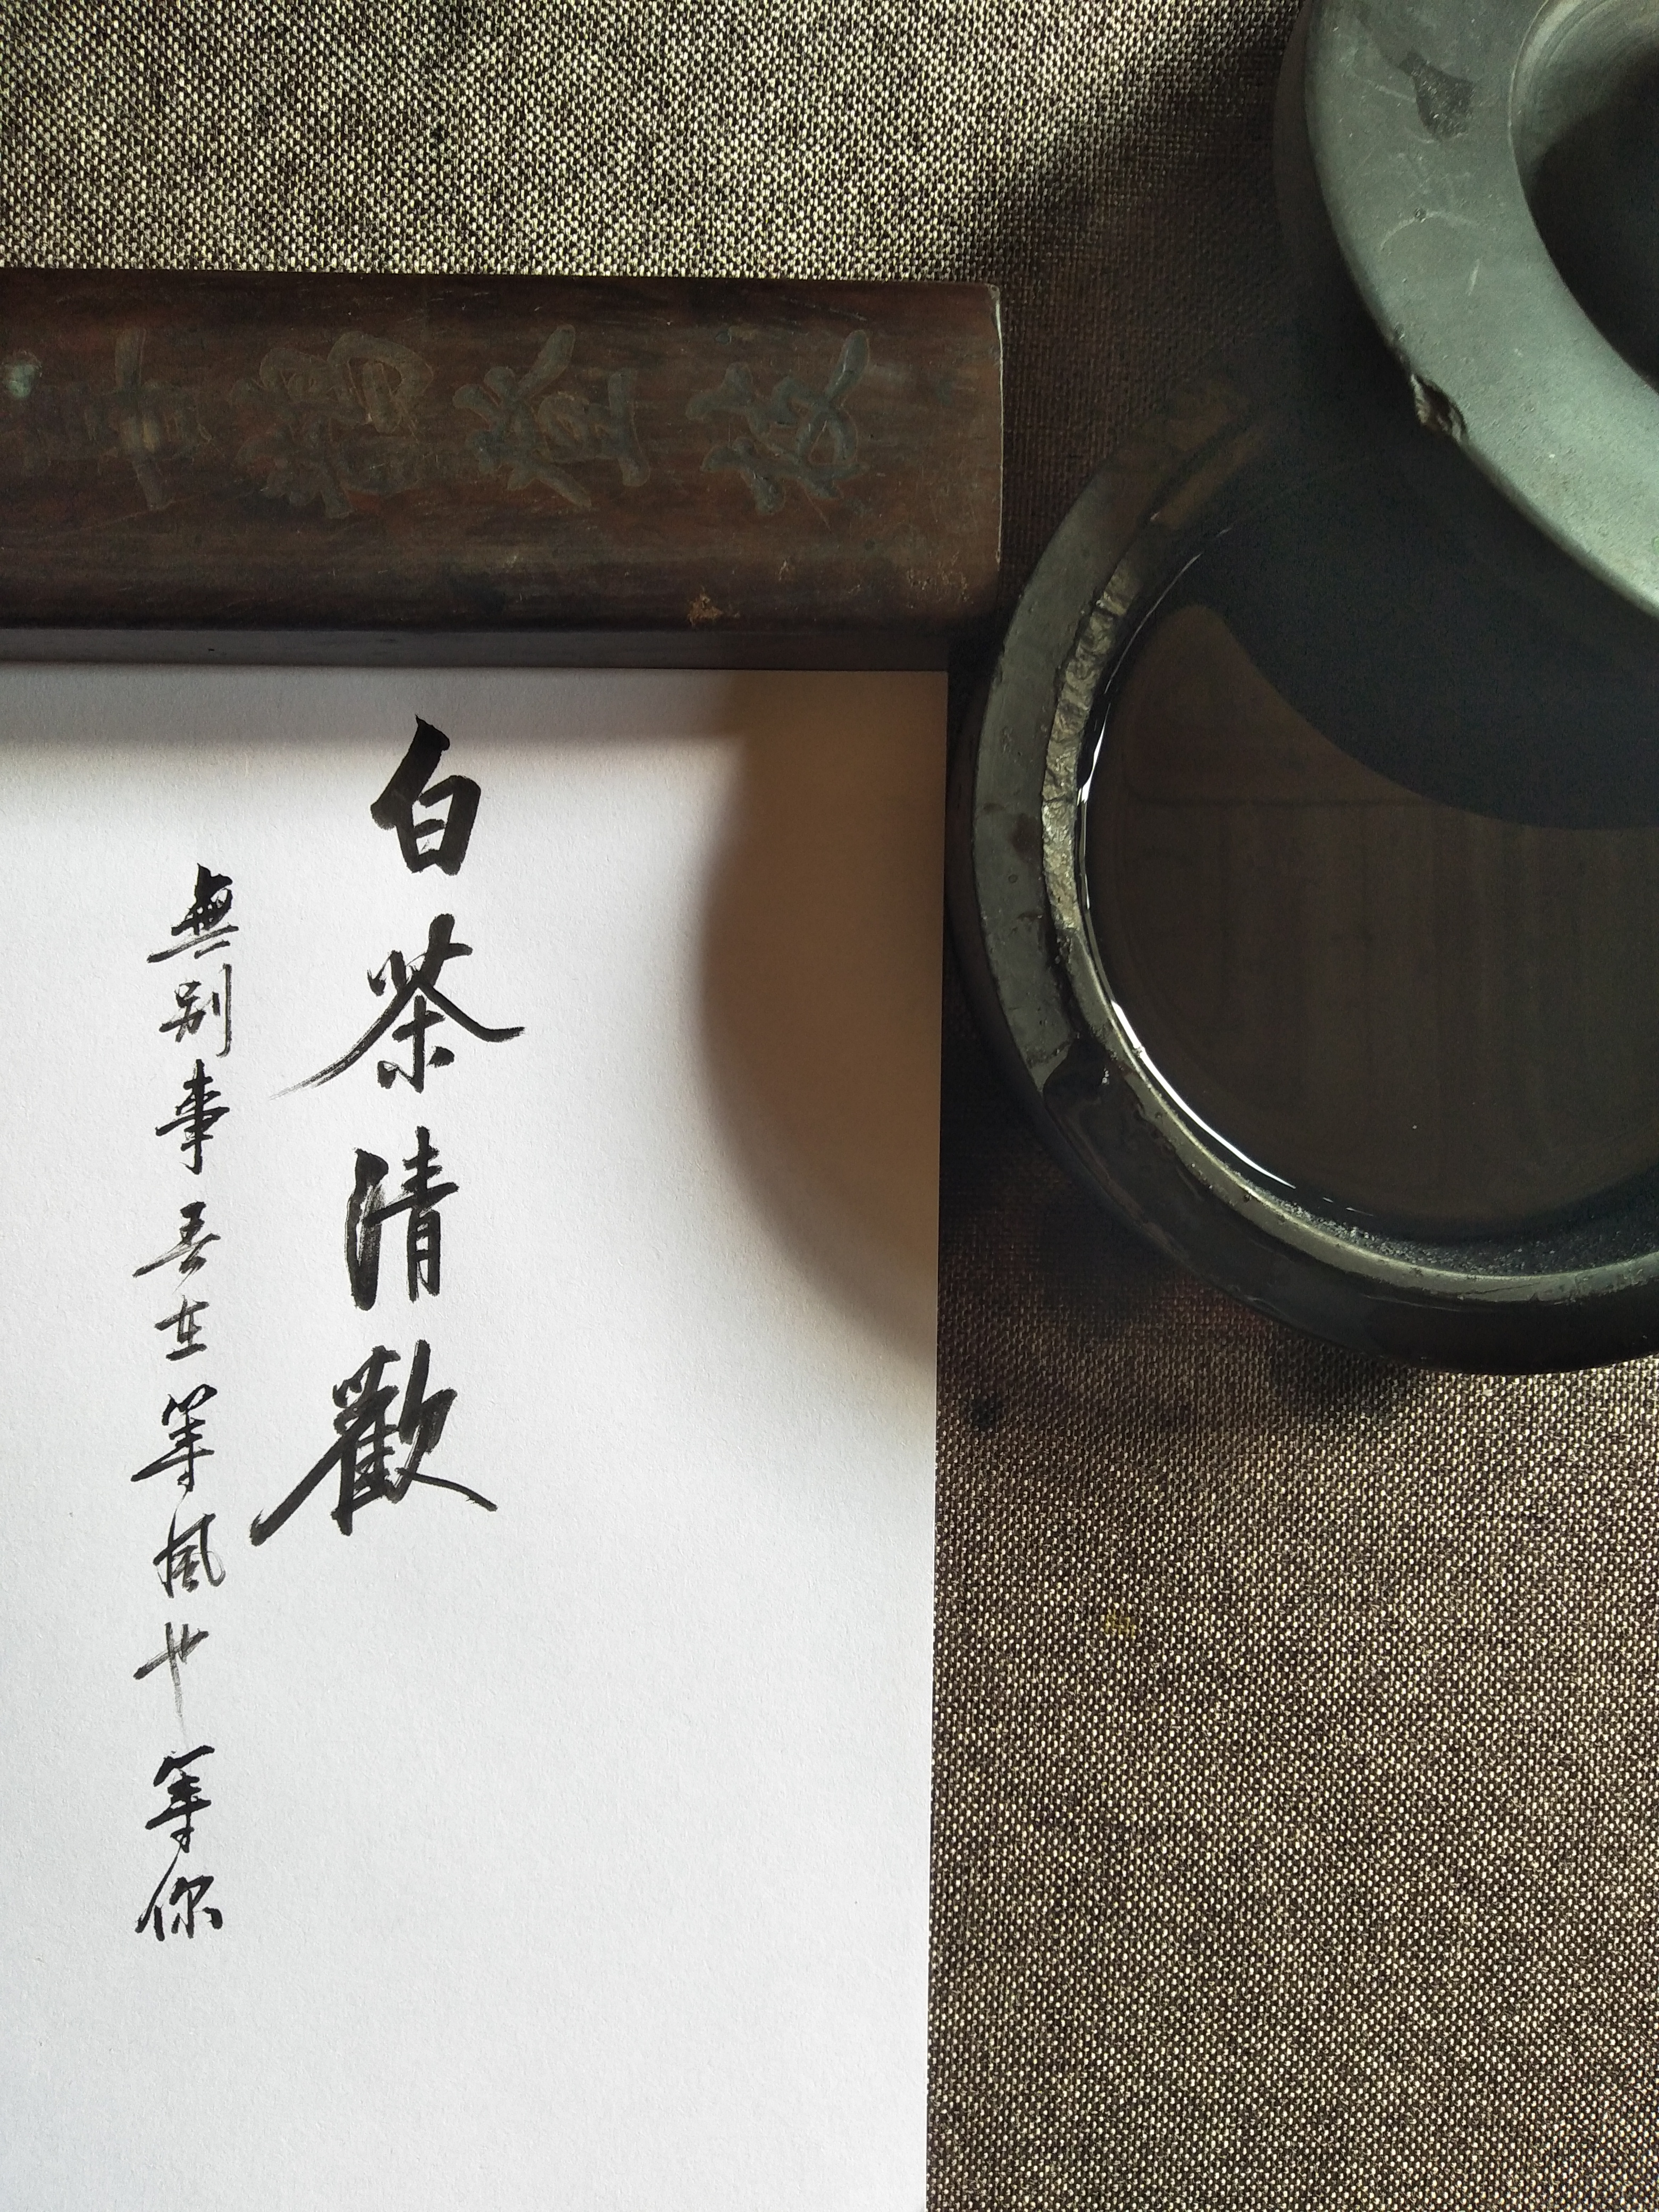 白茶清歡
無别事吾在等風也等你